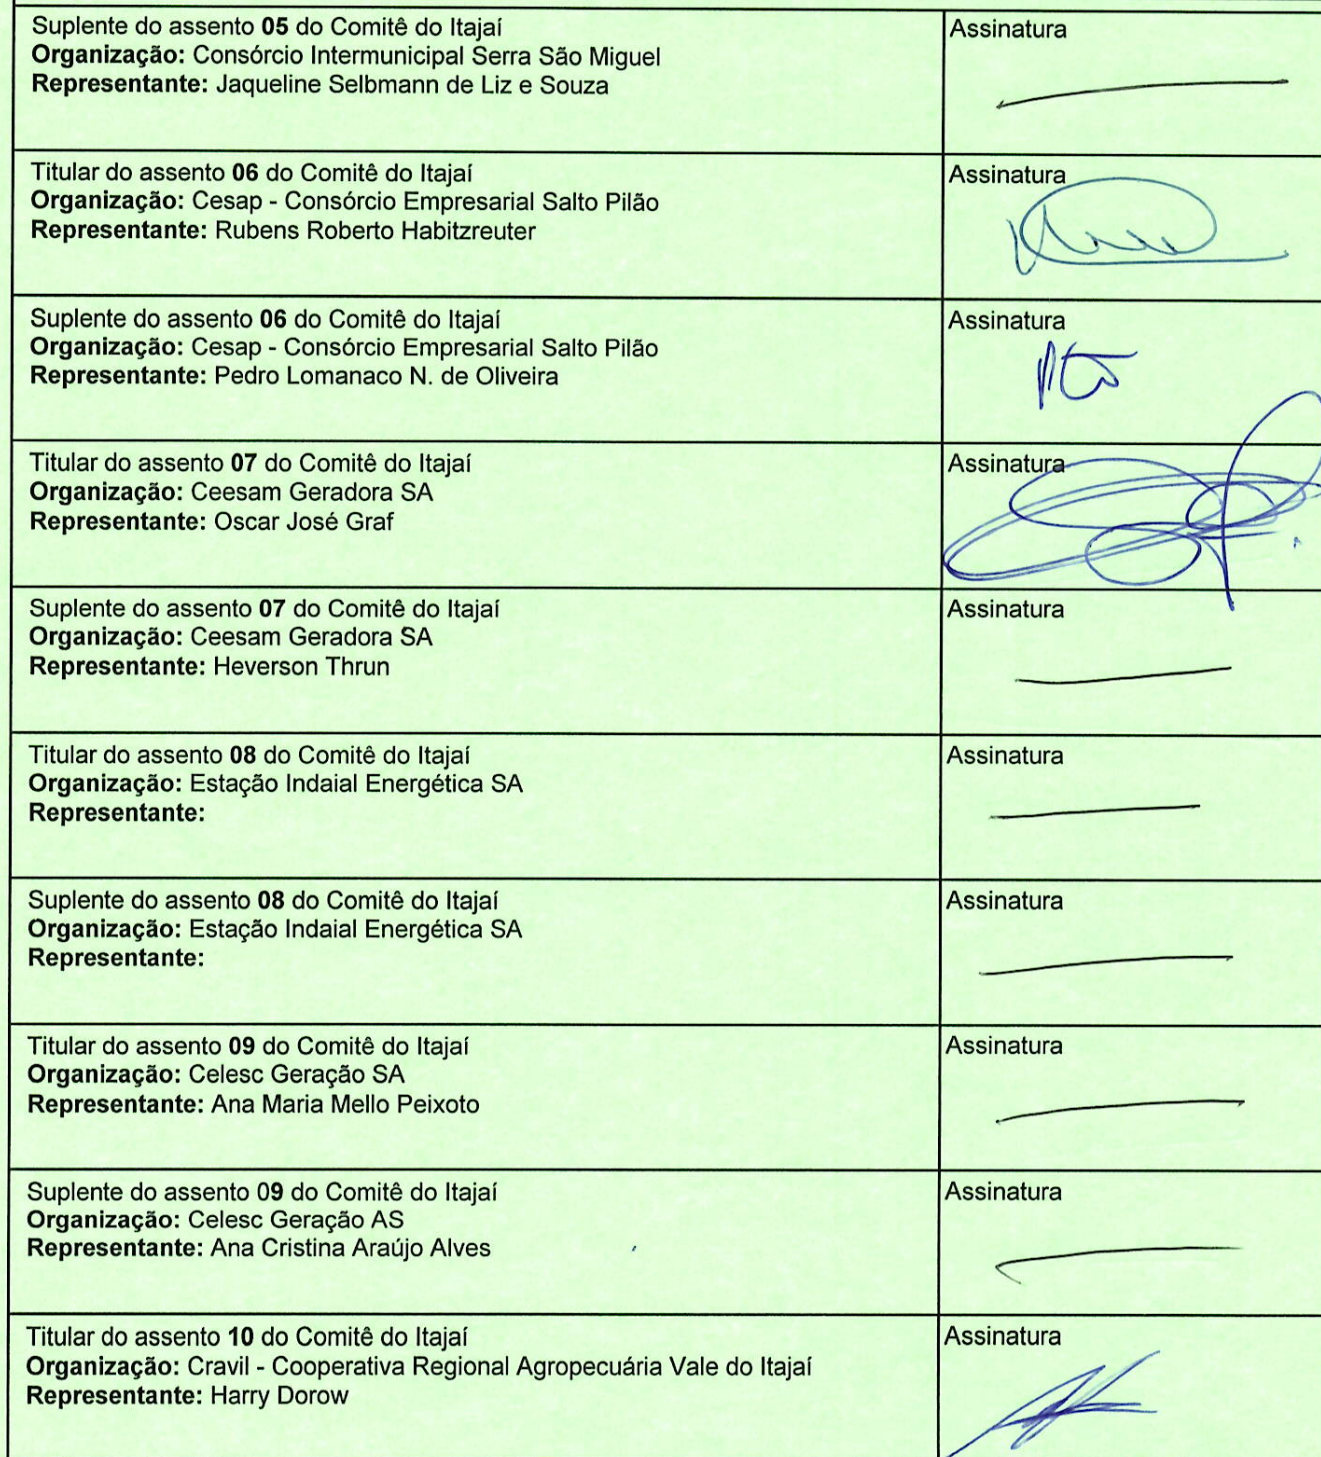 Suplente do assento 05 do Comitê do Itajaí
Organização: Consórcio Intermunicipal Serra São Miguel
Representante: Jaqueline Selbmann de Liz e Souza
Assinatura
Titular do assento 06 do Comitê do Itajaí
Organização: Cesap - Consórcio Empresarial Salto Pilão
Representante: Rubens Roberto Habitzreuter
Assinatura
Suplente do assento 06 do Comitê do Itajaí
Organização: Cesap - Consórcio Empresarial Salto Pilão
Representante: Pedro Lomanaco N. de Oliveira
Assinatura
Titular do assento 07 do Comitê do Itajaí
Organização: Ceesam Geradora SA
Representante: Oscar José Graf
Assinatura
Suplente do assento 07 do Comitê do Itajaí
Organização: Ceesam Geradora SA
Representante: Heverson Thrun
Assinatura
Titular do assento 08 do Comitê do Itajaí
Organização: Estação Indaial Energética SA
Representante:
Assinatura
Suplente do assento 08 do Comitê do Itajaí
Organização: Estação Indaial Energética SA
Representante:
Assinatura
Titular do assento 09 do Comitê do Itajaí
Organização: Celesc Geração SA
Representante: Ana Maria Mello Peixoto
Assinatura
Suplente do assento 09 do Comitê do Itajaí
Organização: Celesc Geração AS
Representante: Ana Cristina Araújo Alves
Assinatura
Titular do assento 10 do Comitê do Itajaí
Organização: Cravil - Cooperativa Regional Agropecuária Vale do Itajaí
Representante: Harry Dorow
Assinatura